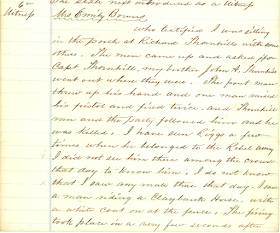 6th
Witness
The State next introduced as a Witness
Mrs Emily Downs
who testified I was sitting
in the porch at Richard Thornhills with some
others. The men came up and asked for
Capt. Thornhill, my brother John A. Thornhill
went out where they were. The front man
threw up his hand and one man
his pistol and fired twice. and Thornhill
ran and the party followed him and he
was killed. I have seen Riggs a few
times where he belonged to the Rebel Army
I did not see him there among the crowd
that day to know him. I do not know
that I saw any mule there that day. I saw
a man riding a Claybank Horse, with
a white coat on at the fence. The firing
took place in a very few seconds after